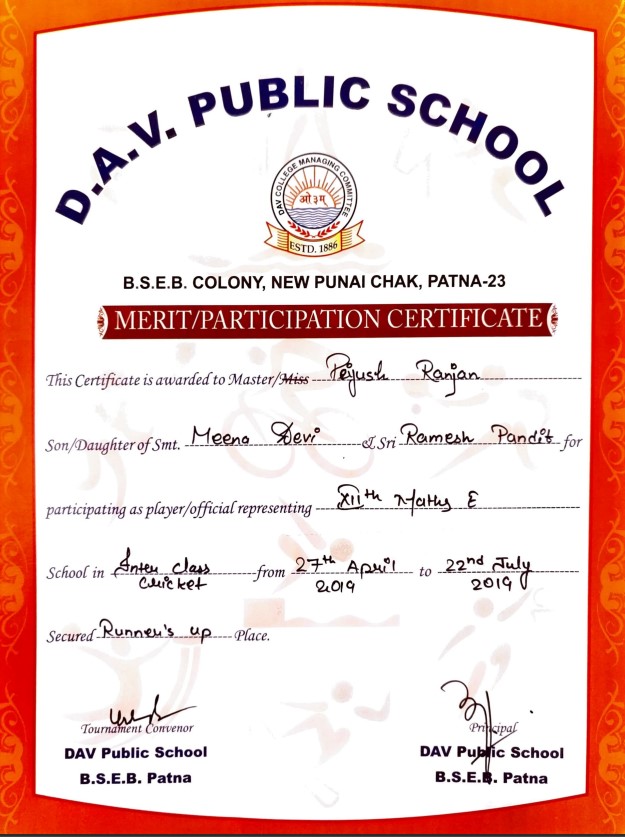 D.A.V. PUBLIC SCHOOL
DAV COLLEGE MANAGING COMMITTEE
ओ३म्
ESTD. 1886
B.S.E.B. COLONY, NEW PUNAI CHAK, PATNA-23
MERIT/PARTICIPATION CERTIFICATE
This Certificate is awarded to Master/Miss Peyush Ranjan
Son/Daughter of Smt. Meena Devi & Sri Ramesh Pandit for
participating as player/official representing XIIth Maths E
School in Inter Class Cricket from 27th April 2019 to 22nd July 2019
Secured Runner's up Place.
Tournament Convenor
DAV Public School
B.S.E.B. Patna
Principal
DAV Public School
B.S.E.B. Patna